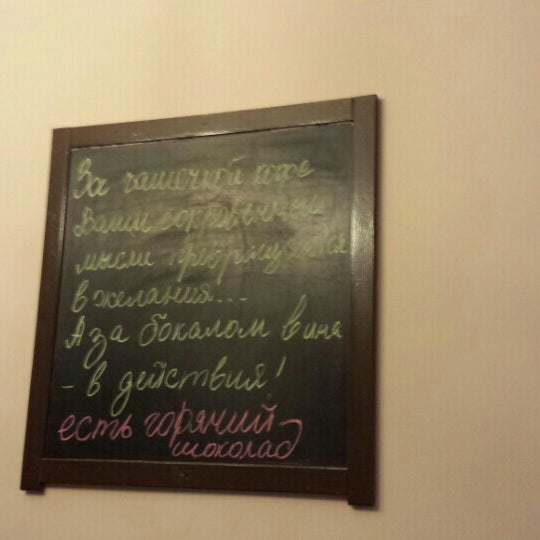 За чашечкой кофе
Ваши сокровенные
мысли превращаются
в желания...
А за бокалом вина
- в действия!
есть горячий
шоколад